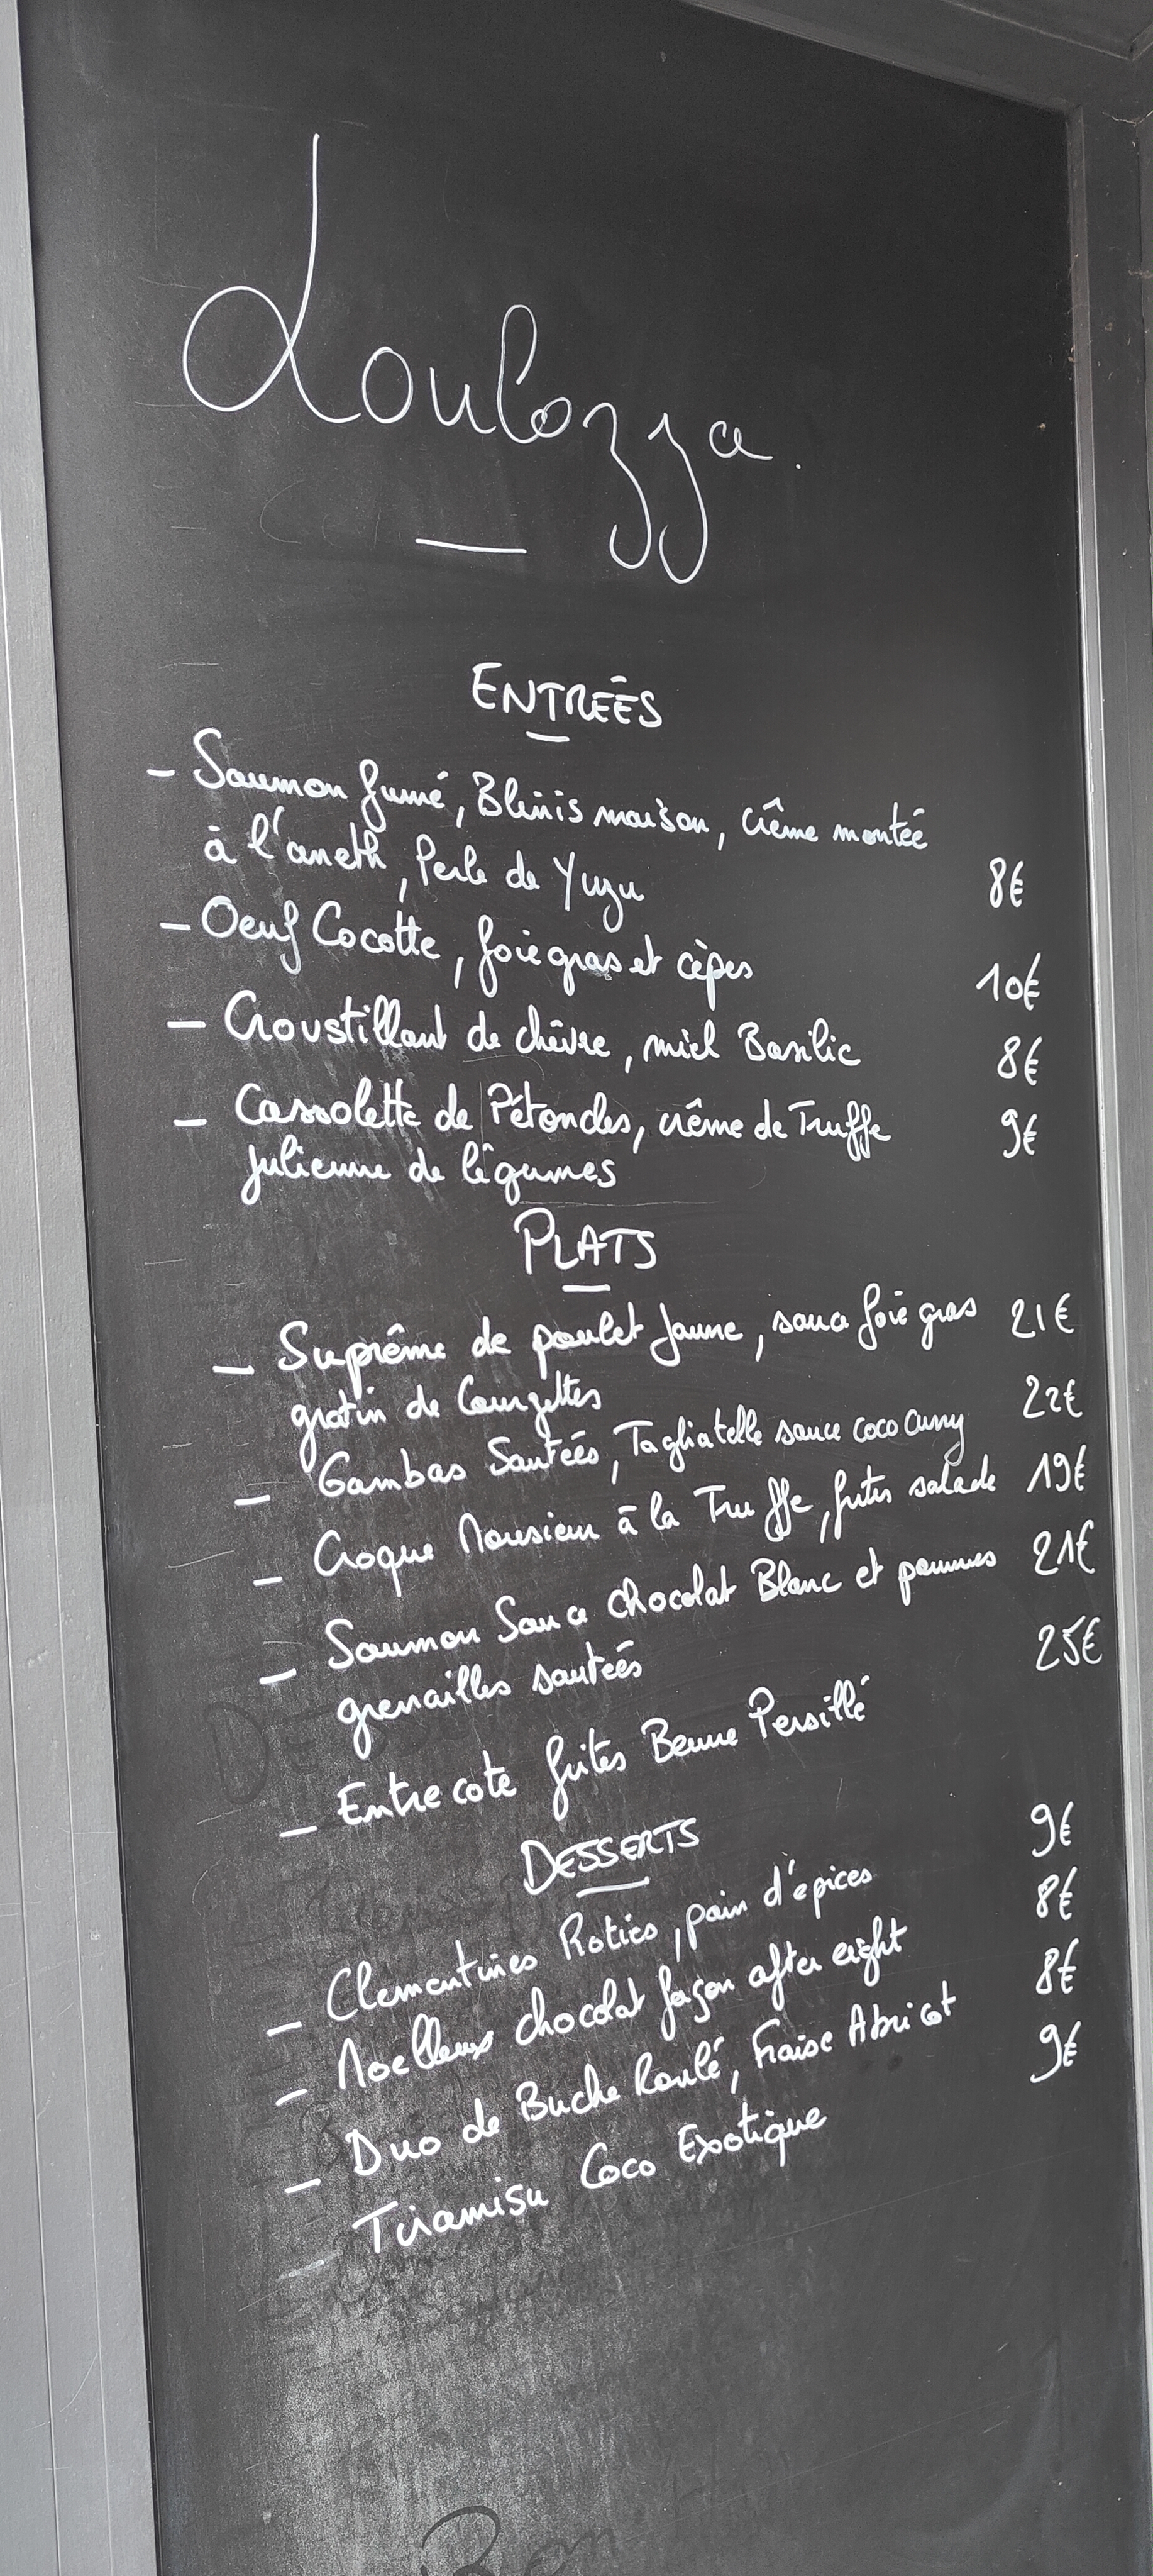 Loulozza.
ENTREÉS
- Saumon fumé, Blinis maison, crème montée
à l'aneth, Perle de Yuzu 8€
- Oeuf Cocotte, foie gras et cèpes 10€
- Croustillant de chèvre, miel Basilic 8€
- Cassolette de Pétoncles, crème de Truffe 9€
julienne de légumes
PLATS
- Suprême de poulet Jaune, sauce foie gras 21€
gratin de Courgettes
- Gambas Sautéés, Tagliatelle sauce coco curry 22€
- Croque Monsieur à la Truffe, frites salade 19€
- Saumon Sauce chocolat Blanc et pommes 21€
grenailles sautéés
- Entre cote frites Beurre Persillé 25€
DESSERTS
- Clementines Roties, pain d'épices 9€
- Moelleux chocolat façon after eight 8€
- Duo de Buche Roulé, Fraise Abricot 8€
- Tiramisu Coco Exotique 9€